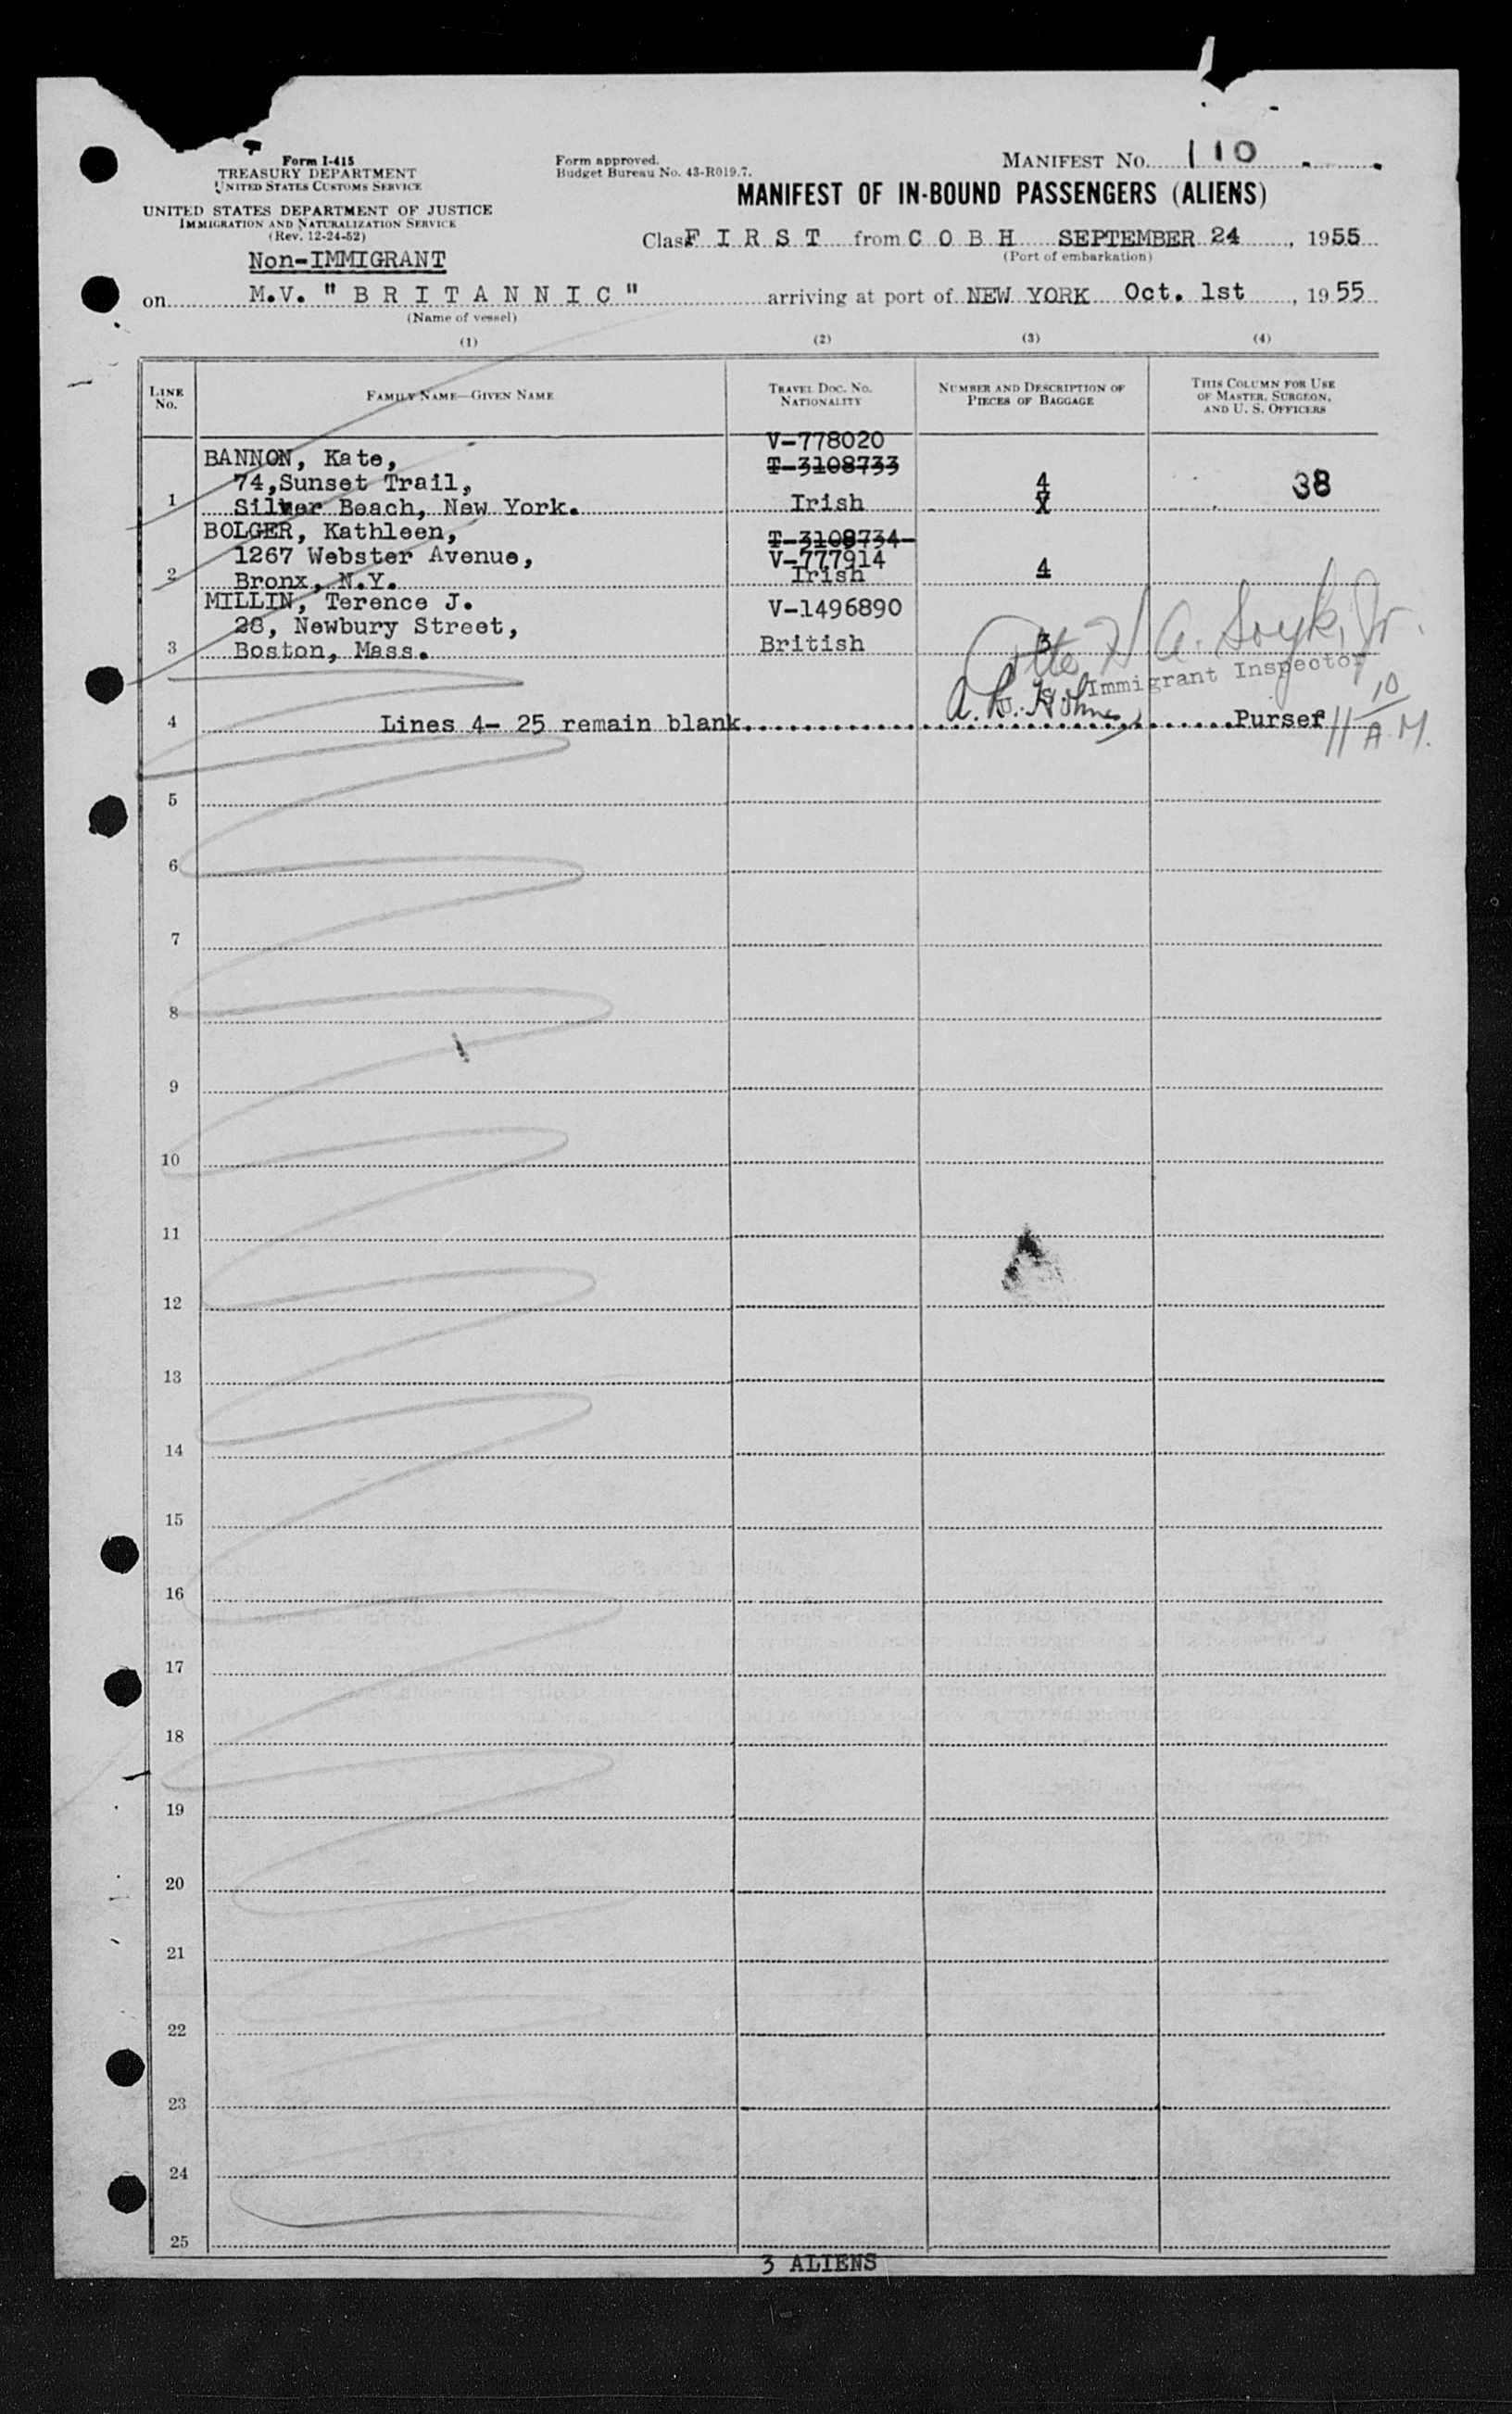 Form I-415
TREASURY DEPARTMENT
UNITED STATES CUSTOMS SERVICE
UNITED STATES DEPARTMENT OF JUSTICE
IMMIGRATION AND NATURALIZATION SERVICE
(Rev. 12-24-52)
Non-IMMIGRANT
Form approved.
Budget Bureau No. 43-R019.7.
MANIFEST NO. 110
MANIFEST OF IN-BOUND PASSENGERS (ALIENS)
Class F I R S T from C O B H SEPTEMBER 24, 1955
(Port of embarkation)
on M.V. " B R I T A N N I C " arriving at port of NEW YORK Oct. 1st, 1955
(Name of vessel)
(1) (2) (3) (4)
LINE NO. FAMILY NAME—GIVEN NAME TRAVEL DOC. NO. NATIONALITY NUMBER AND DESCRIPTION OF PIECES OF BAGGAGE THIS COLUMN FOR USE OF MASTER, SURGEON, AND U. S. OFFICERS
V-778020
BANNON, Kate, T-3108733
74,Sunset Trail, 4 38
1 Silver Beach, New York. Irish X
BOLGER, Kathleen, T-3108734
1267 Webster Avenue, V-777914
2 Bronx, N.Y. Irish 4
MILLIN, Terence J. V-1496890
28, Newbury Street,
3 Boston, Mass. British 3
Immigrant Inspector
4 Lines 4- 25 remain blank Purser 11 10 A.M.
5
6
7
8
9
10
11
12
13
14
15
16
17
18
19
20
21
22
23
24
25
3 ALIENS